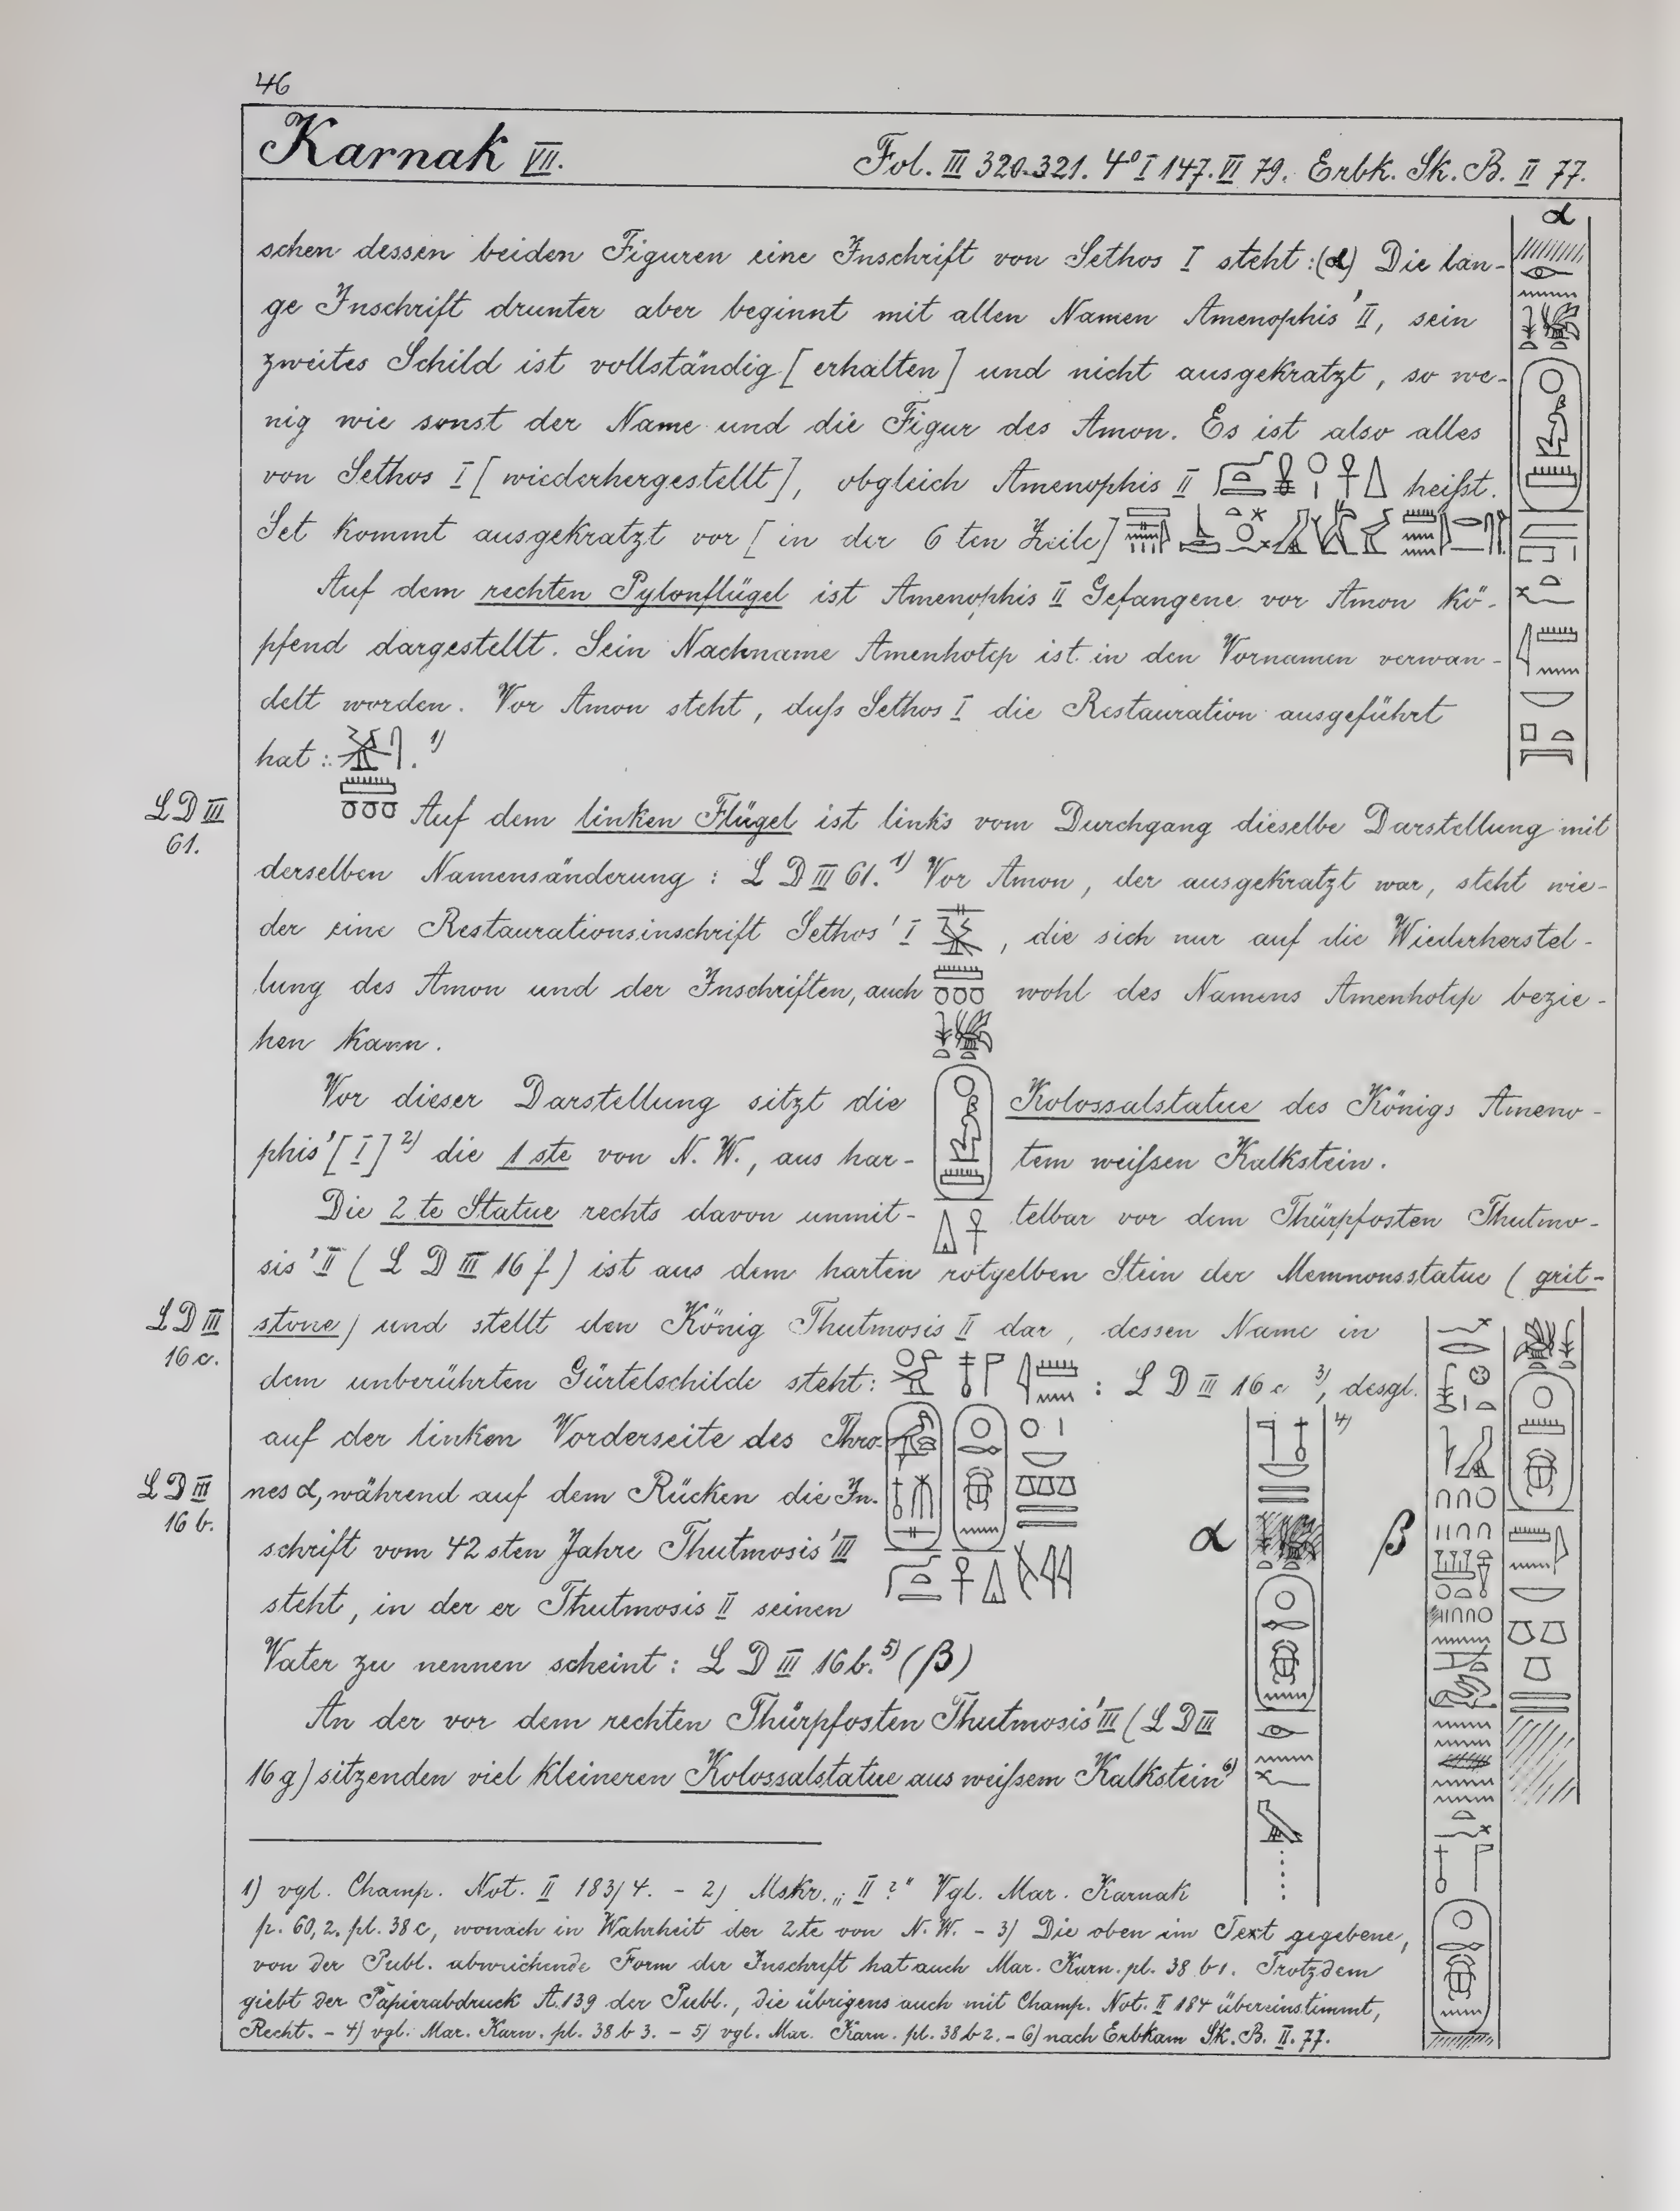 46
Karnak VII.
Fol. III 320.321. 4º I 147. VI 79. Erbk. Sk. B. II 77.
α
schen dessen beiden Figuren eine Inschrift von Sethos I steht: (α) Die lan-
ge Inschrift drunter aber beginnt mit allen Namen Amenophis' II, sein
zweites Schild ist vollständig [erhalten] und nicht ausgekratzt, so we-
nig wie sonst der Name und die Figur des Amon. Es ist also alles
von Sethos I [wiederhergestellt], obgleich Amenophis II heißt.
Set kommt ausgekratzt vor [in der 6ten Zeile]
Auf dem rechten Pylonflügel ist Amenophis II Gefangene vor Amon kö-
pfend dargestellt. Sein Nachname Amenhotep ist in den Vornamen verwan-
delt worden. Vor Amon steht, daß Sethos I die Restauration ausgeführt
hat: . 1)
LD III
61.
Auf dem linken Flügel ist links vom Durchgang dieselbe Darstellung mit
derselben Namensänderung: LD III 61. 1) Vor Amon, der ausgekratzt war, steht wie-
der eine Restaurationsinschrift Sethos' I , die sich nur auf die Wiederherstel-
lung des Amon und der Inschriften, auch wohl des Namens Amenhotep bezie-
hen kann.
Vor dieser Darstellung sitzt die Kolossalstatue des Königs Ameno-
phis' [I] 2) die 1ste von N. W., aus har- tem weißen Kalkstein.
Die 2te Statue rechts davon unmit- telbar vor dem Thürpfosten Thutmo-
sis' II (LD III 16 f) ist aus dem harten rotgelben Stein der Memnonsstatue (grit-
LD III
16 c.
stone) und stellt den König Thutmosis II dar, dessen Name in
dem unberührten Gürtelschilde steht: : LD III 16 c 3), desgl.
auf der linken Vorderseite des Thro-
LD III
16 b.
nes α, während auf dem Rücken die In-
schrift vom 42sten Jahre Thutmosis' III
steht, in der er Thutmosis II seinen
Vater zu nennen scheint: LD III 16 b. 5) (β)
4)
α
β
An der vor dem rechten Thürpfosten Thutmosis' III (LD III
16 g) sitzenden viel kleineren Kolossalstatue aus weißem Kalkstein 6)
1) vgl. Champ. Not. II 183/4. - 2) Mskr. „II?" Vgl. Mar. Karnak
p. 60, 2. pl. 38 c, wonach in Wahrheit der 2te von N. W. - 3) Die oben im Text gegebene,
von der Publ. abweichende Form der Inschrift hat auch Mar. Karn. pl. 38 b 1. Trotzdem
giebt der Papierabdruck A. 139 der Publ., die übrigens auch mit Champ. Not. II 184 übereinstimmt,
Recht. - 4) vgl. Mar. Karn. pl. 38 b 3. - 5) vgl. Mar. Karn. pl. 38 b 2. - 6) nach Erbkam Sk. B. II. 77.